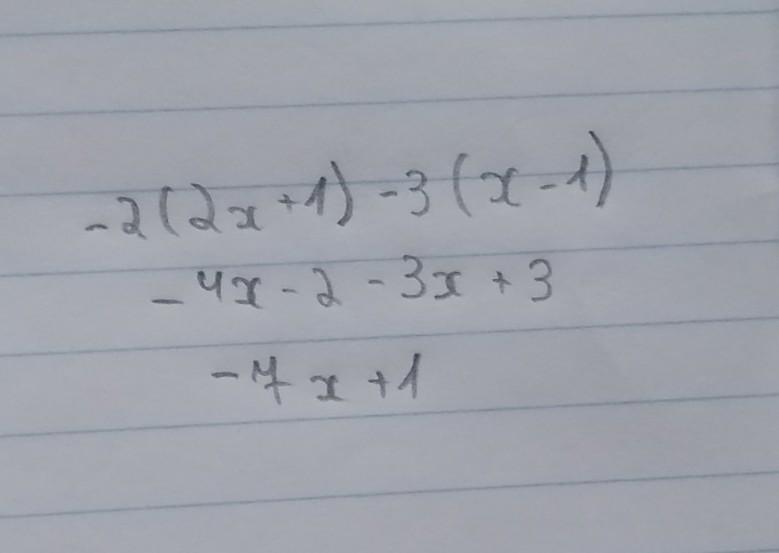 -2(2x+1)-3(x-1)
-4x-2-3x+3
-7x+1